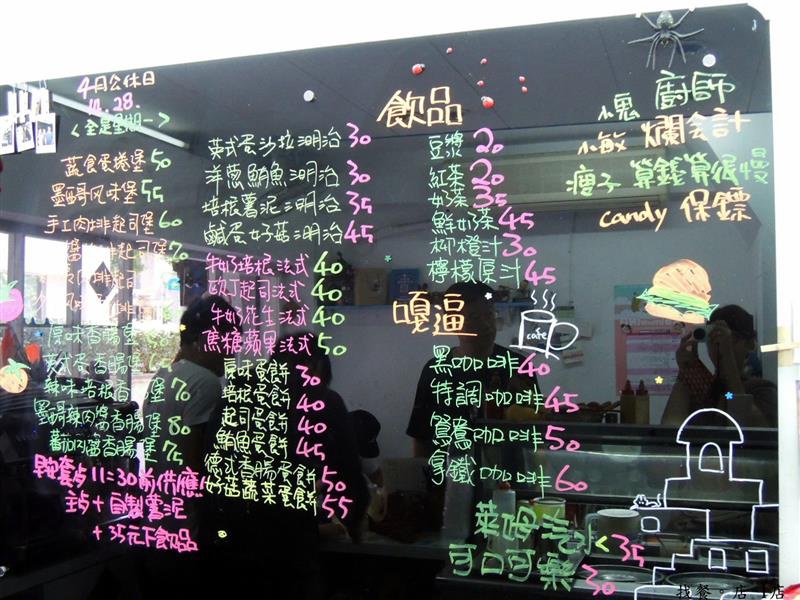 4月公休日
14. 28.
<全是星期一>
蔬食蛋捲堡50
墨西哥风味堡55
手工肉排起司堡60
原味香腸堡
英式香腸堡
辣味培根香腸堡70
墨西哥辣肉醬香腸堡80
蕃茄肉醬香腸堡75
早安套餐11=30前供應
主餐+自製薯泥
+35元下飲品
英式蛋沙拉三明治30
洋蔥鮪魚三明治30
培根薯泥三明治35
鹹蛋好菇三明治45
牛奶培根法式40
歐丁起司法式40
牛奶花生法式40
焦糖蘋果法式50
原味蛋餅30
培根蛋餅40
起司蛋餅40
鮪魚蛋餅45
德式香腸蛋餅50
好菇蔬菜蛋餅55
飲品
豆漿20
紅茶20
奶茶35
鮮奶茶45
柳橙汁30
檸檬原汁45
嘎逼
cafe
黑咖啡40
特調咖啡45
鴛鴦咖啡50
拿鐵咖啡60
萊姆汽水<35
可口可樂30
小塊 廚師
小敏 爛会計
瘦子 算錢算很慢
candy 保鏢
找餐。店